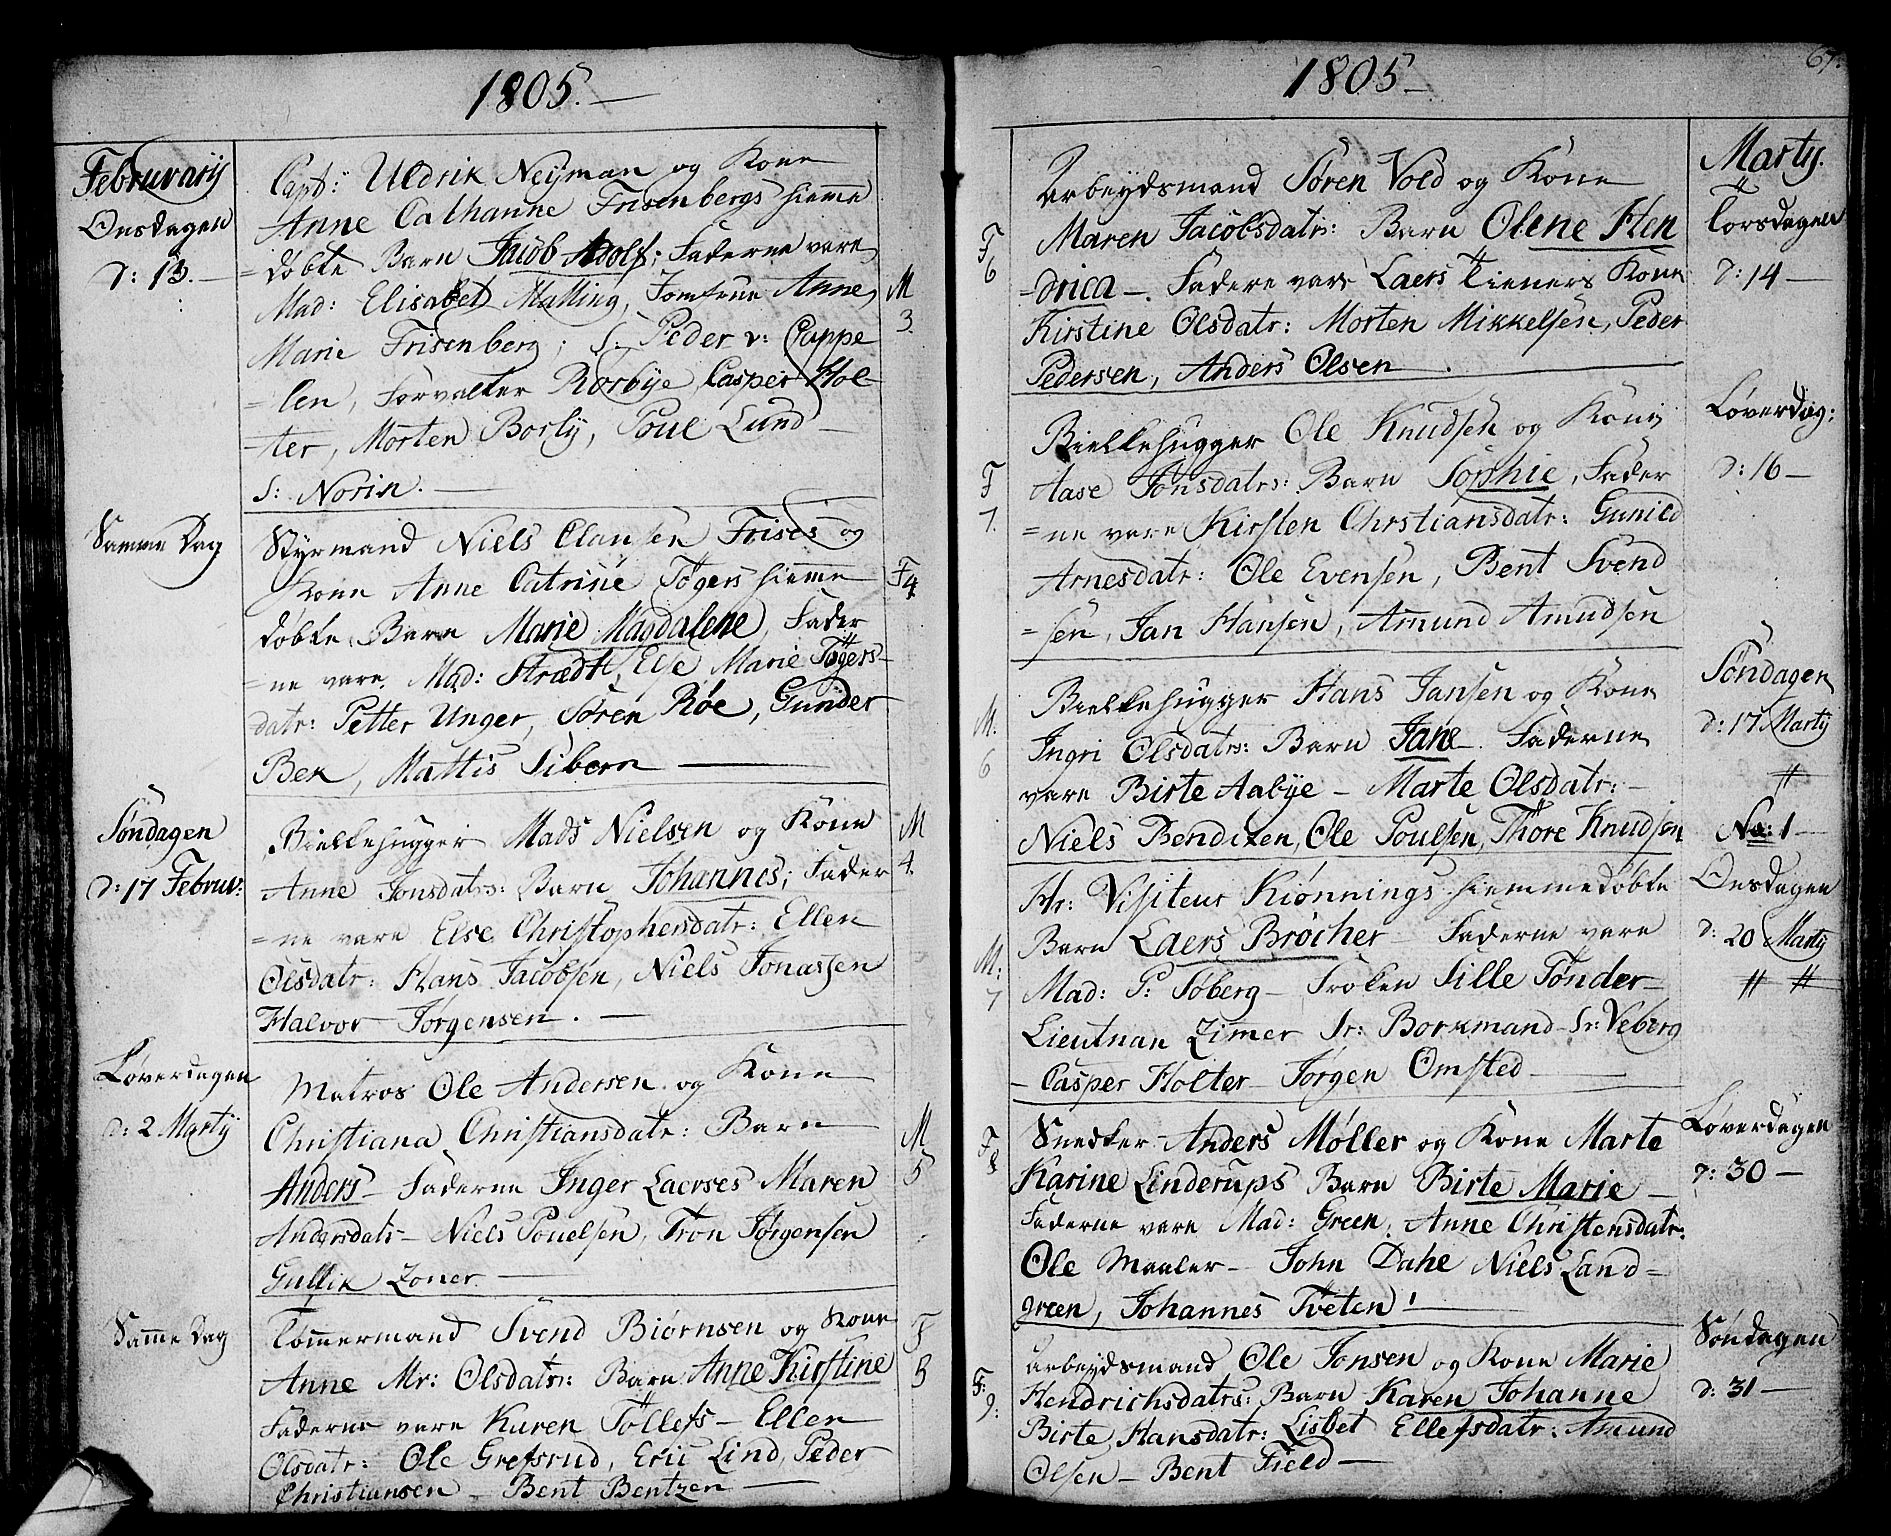 1805.
Februarij
Onsdagen
d: 13.
Capt: Uldrik Neyman og Kone
Anne Cathanne Frisenbergs hieme
=døbte Barn Jacob Adolf; Faderne vare
Mad: Elisabet Malling, Jomfrue Anne
Marie Frisenberg; S: Peder v: Cappe
=len, Forvalter Rorbye, Casper Hol=
=ter, Morten Borly, Poul Lund
S: Norin.
M
3.
Samme Dag
Styrmand Niels Clausen Frises og
Kone Anne Catrine Tøgers hieme
døbte Barn Marie Magdalene, Fader
=ne vare Mad: Strædt, Else Marie Tøgers=
datr: Petter Unger, Søren Røe, Gunder
Bek, Mattis Sibern
F4
Søndagen
d: 17 Februv:
Bielkehugger Mads Nielsen og Kone
Anne Jonsdatrs: Barn Johannes; Fader
=ne vare Else Christophersdatr: Ellen
Olsdatr: Hans Jacobsen, Niels Jonassen
Halvor Jørgensen.
M
4.
Løverdagen
d: 2 Martij
Matros Ole Andersen og Kone
Christiana Christiansdatr: Barn
Anders Faderne Inger Laerses Maren
Andersdatr Niels Pouelsen, Tron Jørgensen
Gullik Zoner.
M
5
Samme Dag
Tømermand Svend Biørnsen og Kone
Anne Mr: Olsdatr: Barn Anne Kirstine
Faderne vare Karen Tøllefs Ellen
Olsdatr: Ole Grefsrud, Eric Lind, Peder
Christiansen Bent Bentzen
F
5
1805
67.
Martij.
Torsdagen
d: 14
F
6
Arbeydsmand Søren Vold og Kone
Maren Jacobsdatr: Barn Olene Hen
=drica. Fadere vare Laers Tieners Kone
Kirstine Olsdatr: Morten Mikkelsen, Peder
Pedersen, Anders Olsen
Løverdag:
d: 16
F
7.
Bielkehugger Ole Knudsen og Kone
Aase Jonsdatrs: Barn Sophie, Fader
=ne vare Kirsten Chrstiansdatr: Gunild
Arnesdatr: Ole Evensen, Bent Svend
=sen, Jan Hansen, Amund Amudsen
Søndagen
d: 17 Martij
M.
6
Bielkehugger Hans Jansen og Kone
Ingri Olsdatrs: Barn Jane. Faderne
vare Birte Aabye – Marte Olsdatr:
Niels Bendixen, Ole Poulsen, Thore Knudsen
No: 1
Onsdagen
d: 20 Martij
M:
7
Hr: Visiteur Kiønnings hiemmedøbte
Barn Laers Brøcher Faderne vare
Mad: P: Søberg – Frøken Sille Tønder
Lieutnan Zimer Sr: Borkmand Sr: Veberg
Casper Holter Jørgen Omsted
Løverdagen
d: 30
F
8
Snecker Anders Møller og Kone Marte
Karine Linderups Barn Birte Marie
Faderne vare Mad: Green, Anne Christensdatr:
Ole Maaler – John Dahe Niels Land=
green, Johannes Tveten
Søndagen
d: 31
F:
9:
Arbeydsmand Ole Jonsen og Kone Marie
Hendrichsdatrs: Barn Karen Johanne
Birte Hansdatr: Lisbet Ellefsdatr: Amund
Olsen – Bent Field